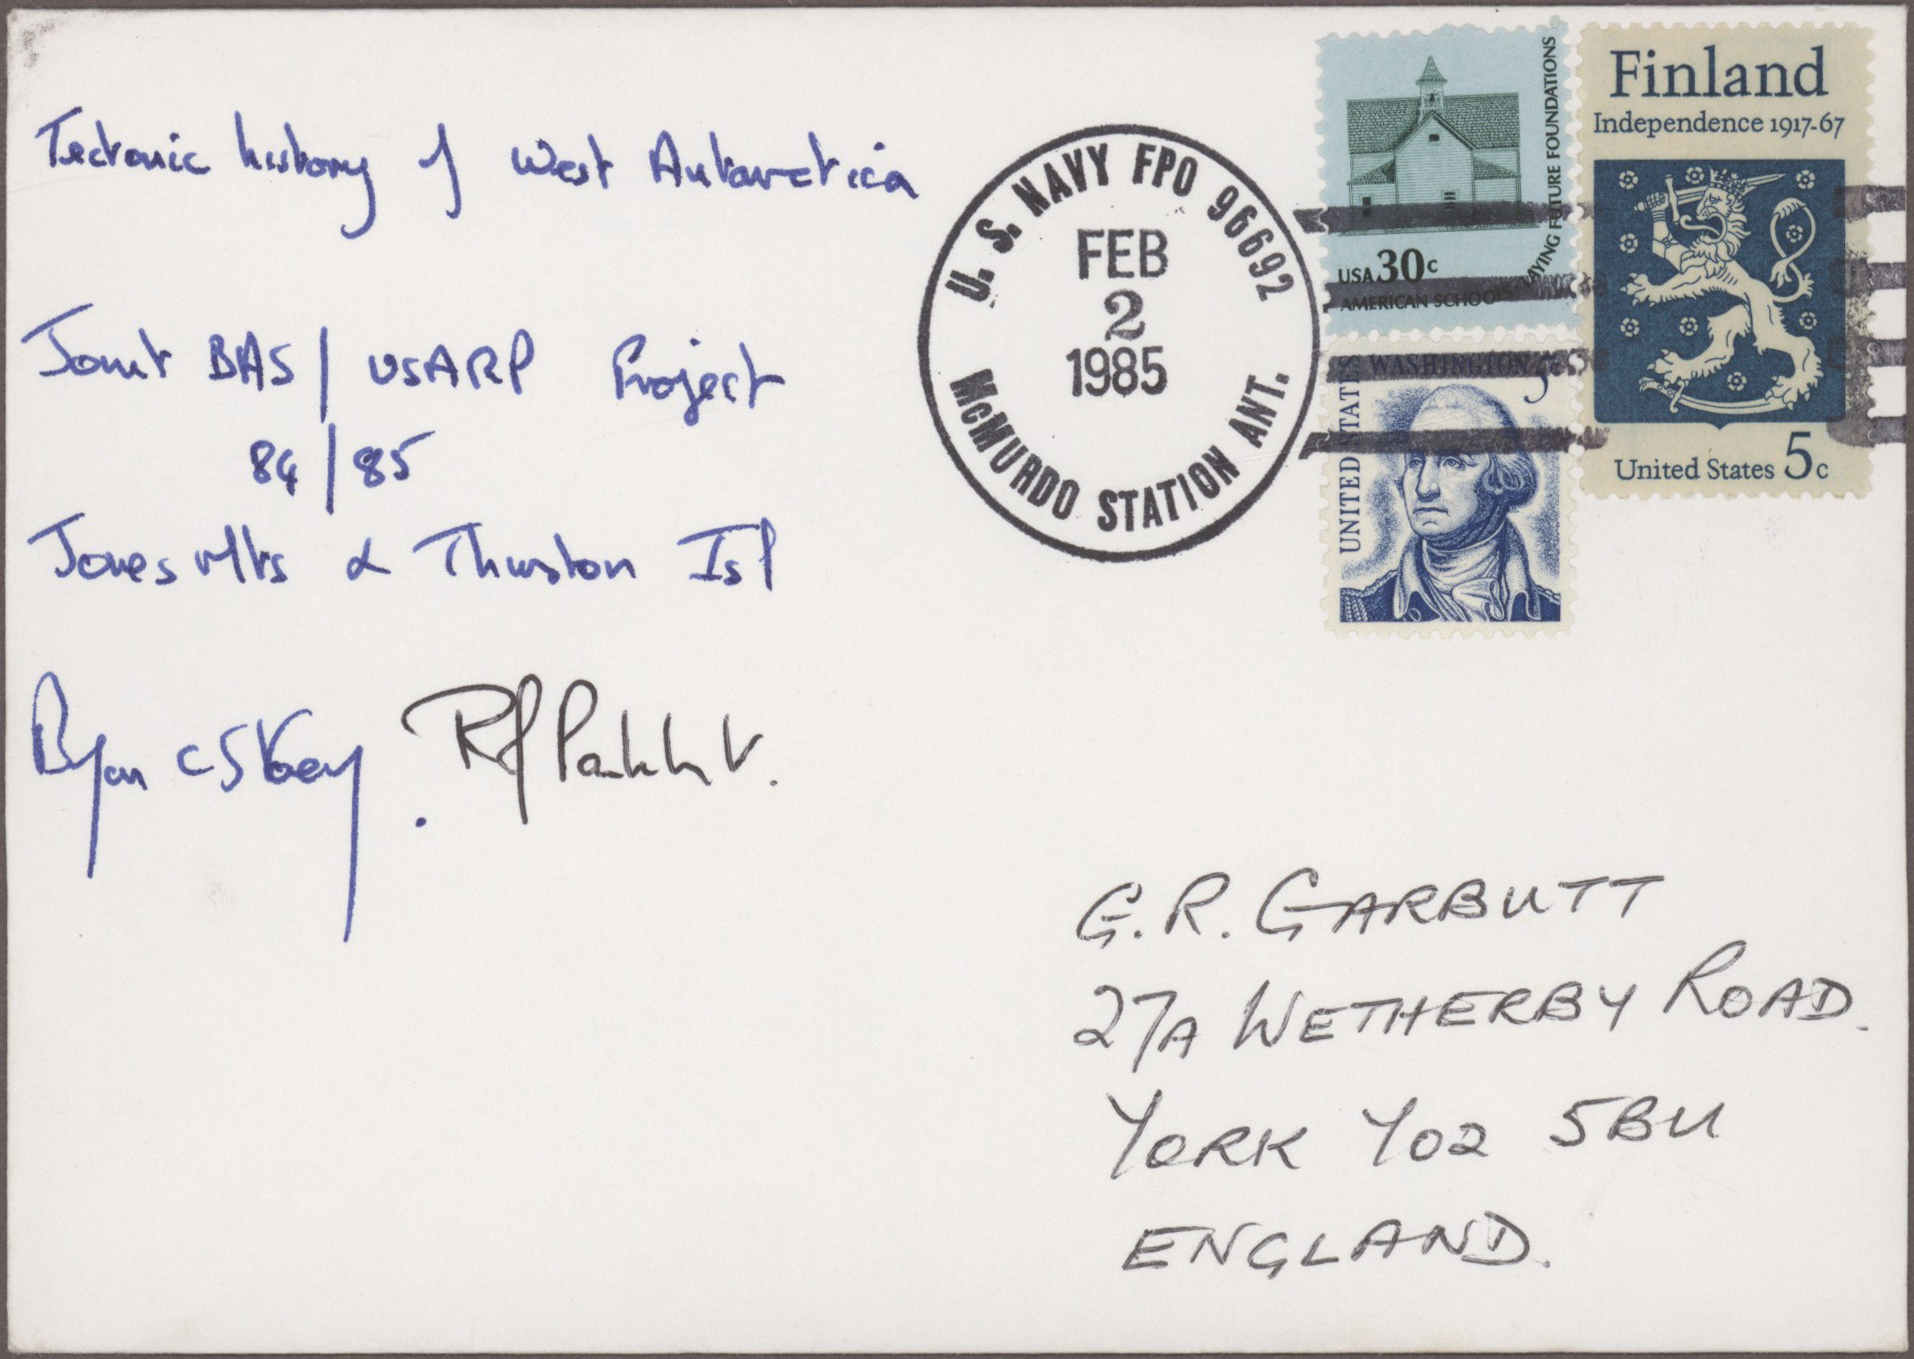 Tectonic history of West Antarctica
Joint BAS / USARP Project
84 / 85
Jones Mts & Thurston Isl
Bryan C Storey.
U. S. NAVY FPO 96692
FEB
2
1985
McMURDO STATION ANT.
USA 30c
AMERICAN SCHOOLS: LAYING FUTURE FOUNDATIONS
Finland
Independence 1917-67
United States 5c
WASHINGTON 5c
UNITED STATES
G. R. GARBUTT
27A WETHERBY ROAD.
YORK YO2 5BU
ENGLAND.